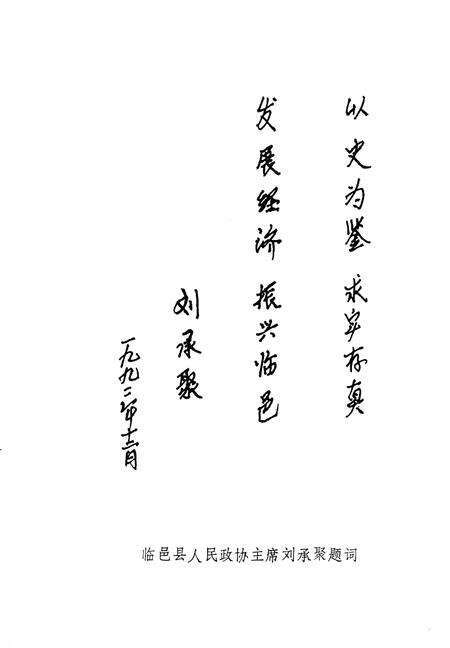 以史为鉴 求实存真
发展经济 振兴临邑
刘承聚
一九九二年十二月
临邑县人民政协主席刘承聚题词